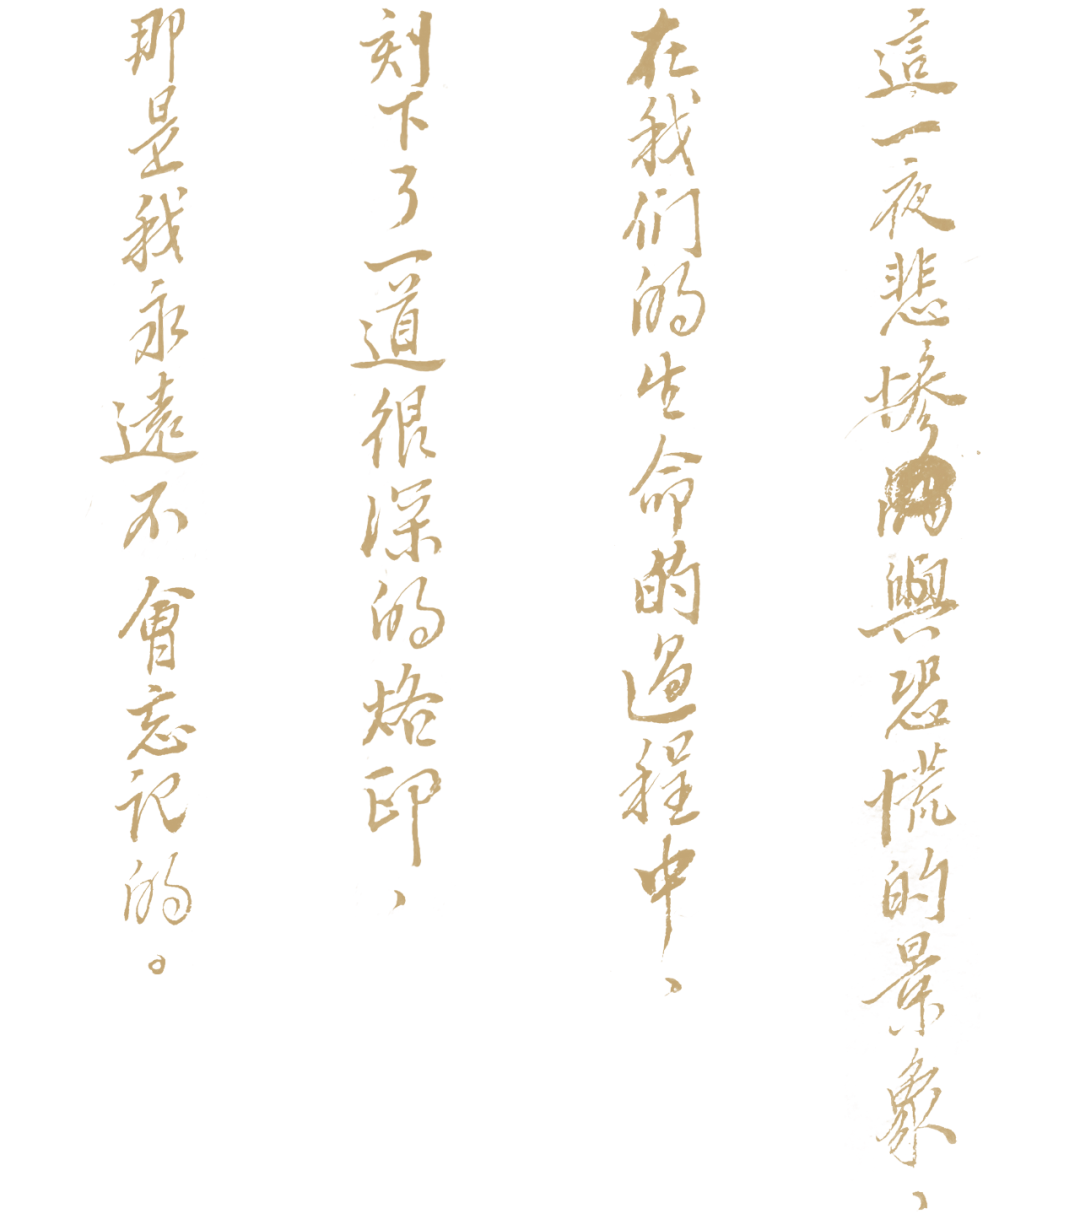 這一夜悲慘與恐慌的景象、
在我们的生命的過程中、
刻下了一道很深的烙印、
那是我永遠不會忘记的。